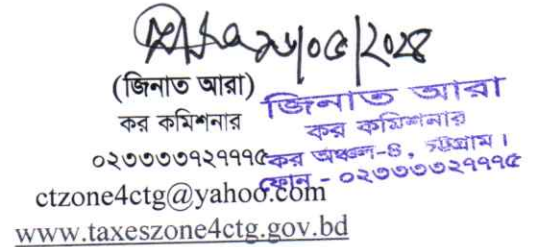 ২৬/০৫/২০২৪
(জিনাত আরা)
কর কমিশনার
০২৩৩৩৩৭২৭৭৭৫
ctzone4ctg@yahoo.com
www.taxeszone4ctg.gov.bd
জিনাত আরা
কর কমিশনার
কর অঞ্চল-৪, চট্টগ্রাম।
ফোন - ০২৩৩৩৩২৭৭৭৫